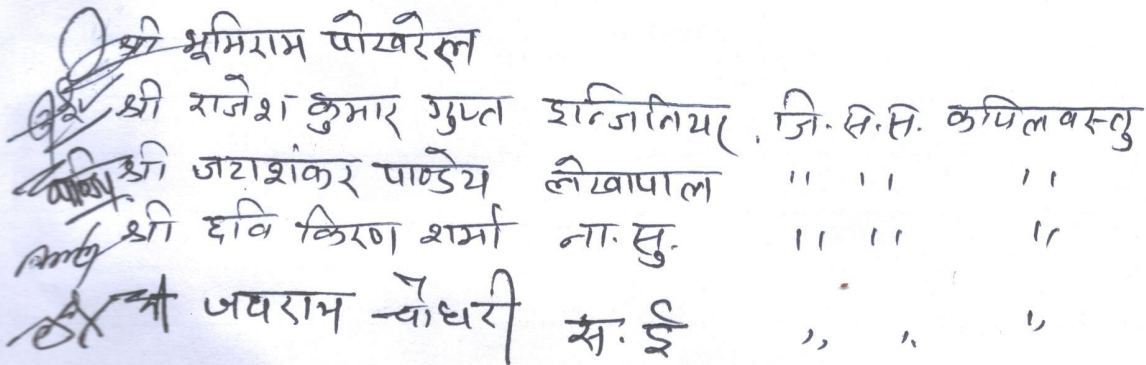 श्री भूमिराम पोखरेल
श्री राजेश कुमार गुप्त इन्जिनियर, जि.स.सि. कपिलवस्तु
श्री जटाशंकर पाण्डेय लेखापाल " " "
श्री छवि किरण शर्मा ना.सु. " " "
श्री जयराम चौधरी स.ई " " "